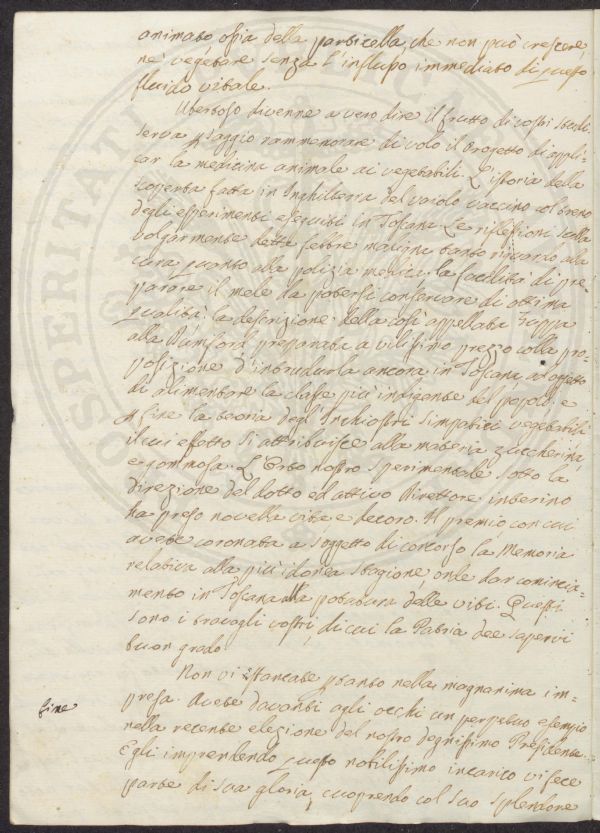 animato ossia della particella, che non può crescere,
nè vegetare senza l'influsso immediato di questo
fluido vitale.
Ubertoso divenne a vero dire il frutto di vostri studi
serva p saggio rammentare di volo il Progetto di appli-
car la medicina animale ai vegetabili. L'istoria della
scoperta fatta in Inghilterra del vaiolo vaccino col
degli esperimenti eseguiti in Toscana. Le riflessioni sulla
volgarmente detta febbre maligna tanto riguardo alla
cura quanto alla polizia medica; la facilità di pre-
parare il mele da potersi conservare di ottima
qualità; la descrizione della così appellata Zuppa
alla Rumford preparata a vilissimo prezzo colla pro-
posizione d'introdurla ancora in Toscana ad oggetto
di alimentare la classe più indigente del popolo; e
p fine la teoria degl'Inchiostri simpatici vegetabili
il cui effetto si attribuisce alla materia zuccherina,
e gommosa. L'Orto nostro sperimentale sotto la
direzione del dotto ed attivo Direttore interino
ha preso novella vita e decoro. Il premio con cui
avete coronata a soggetto di concorso la Memoria
relativa alla più idonea stagione, onde dar comincia-
mento in Toscana alla potatura delle viti. Questi
sono i travagli vostri, di cui la Patria dee sapervi
buon grado.
Non vi stancate ptanto nella magnanima im-
presa. Avete davanti agli occhi un perpetuo esempio
fine
nella recente elezione del nostro degnissimo Presidente.
Egli imprendendo questo nobilissimo incarico vi fece
parte di sua gloria, cuoprendo col suo splendore